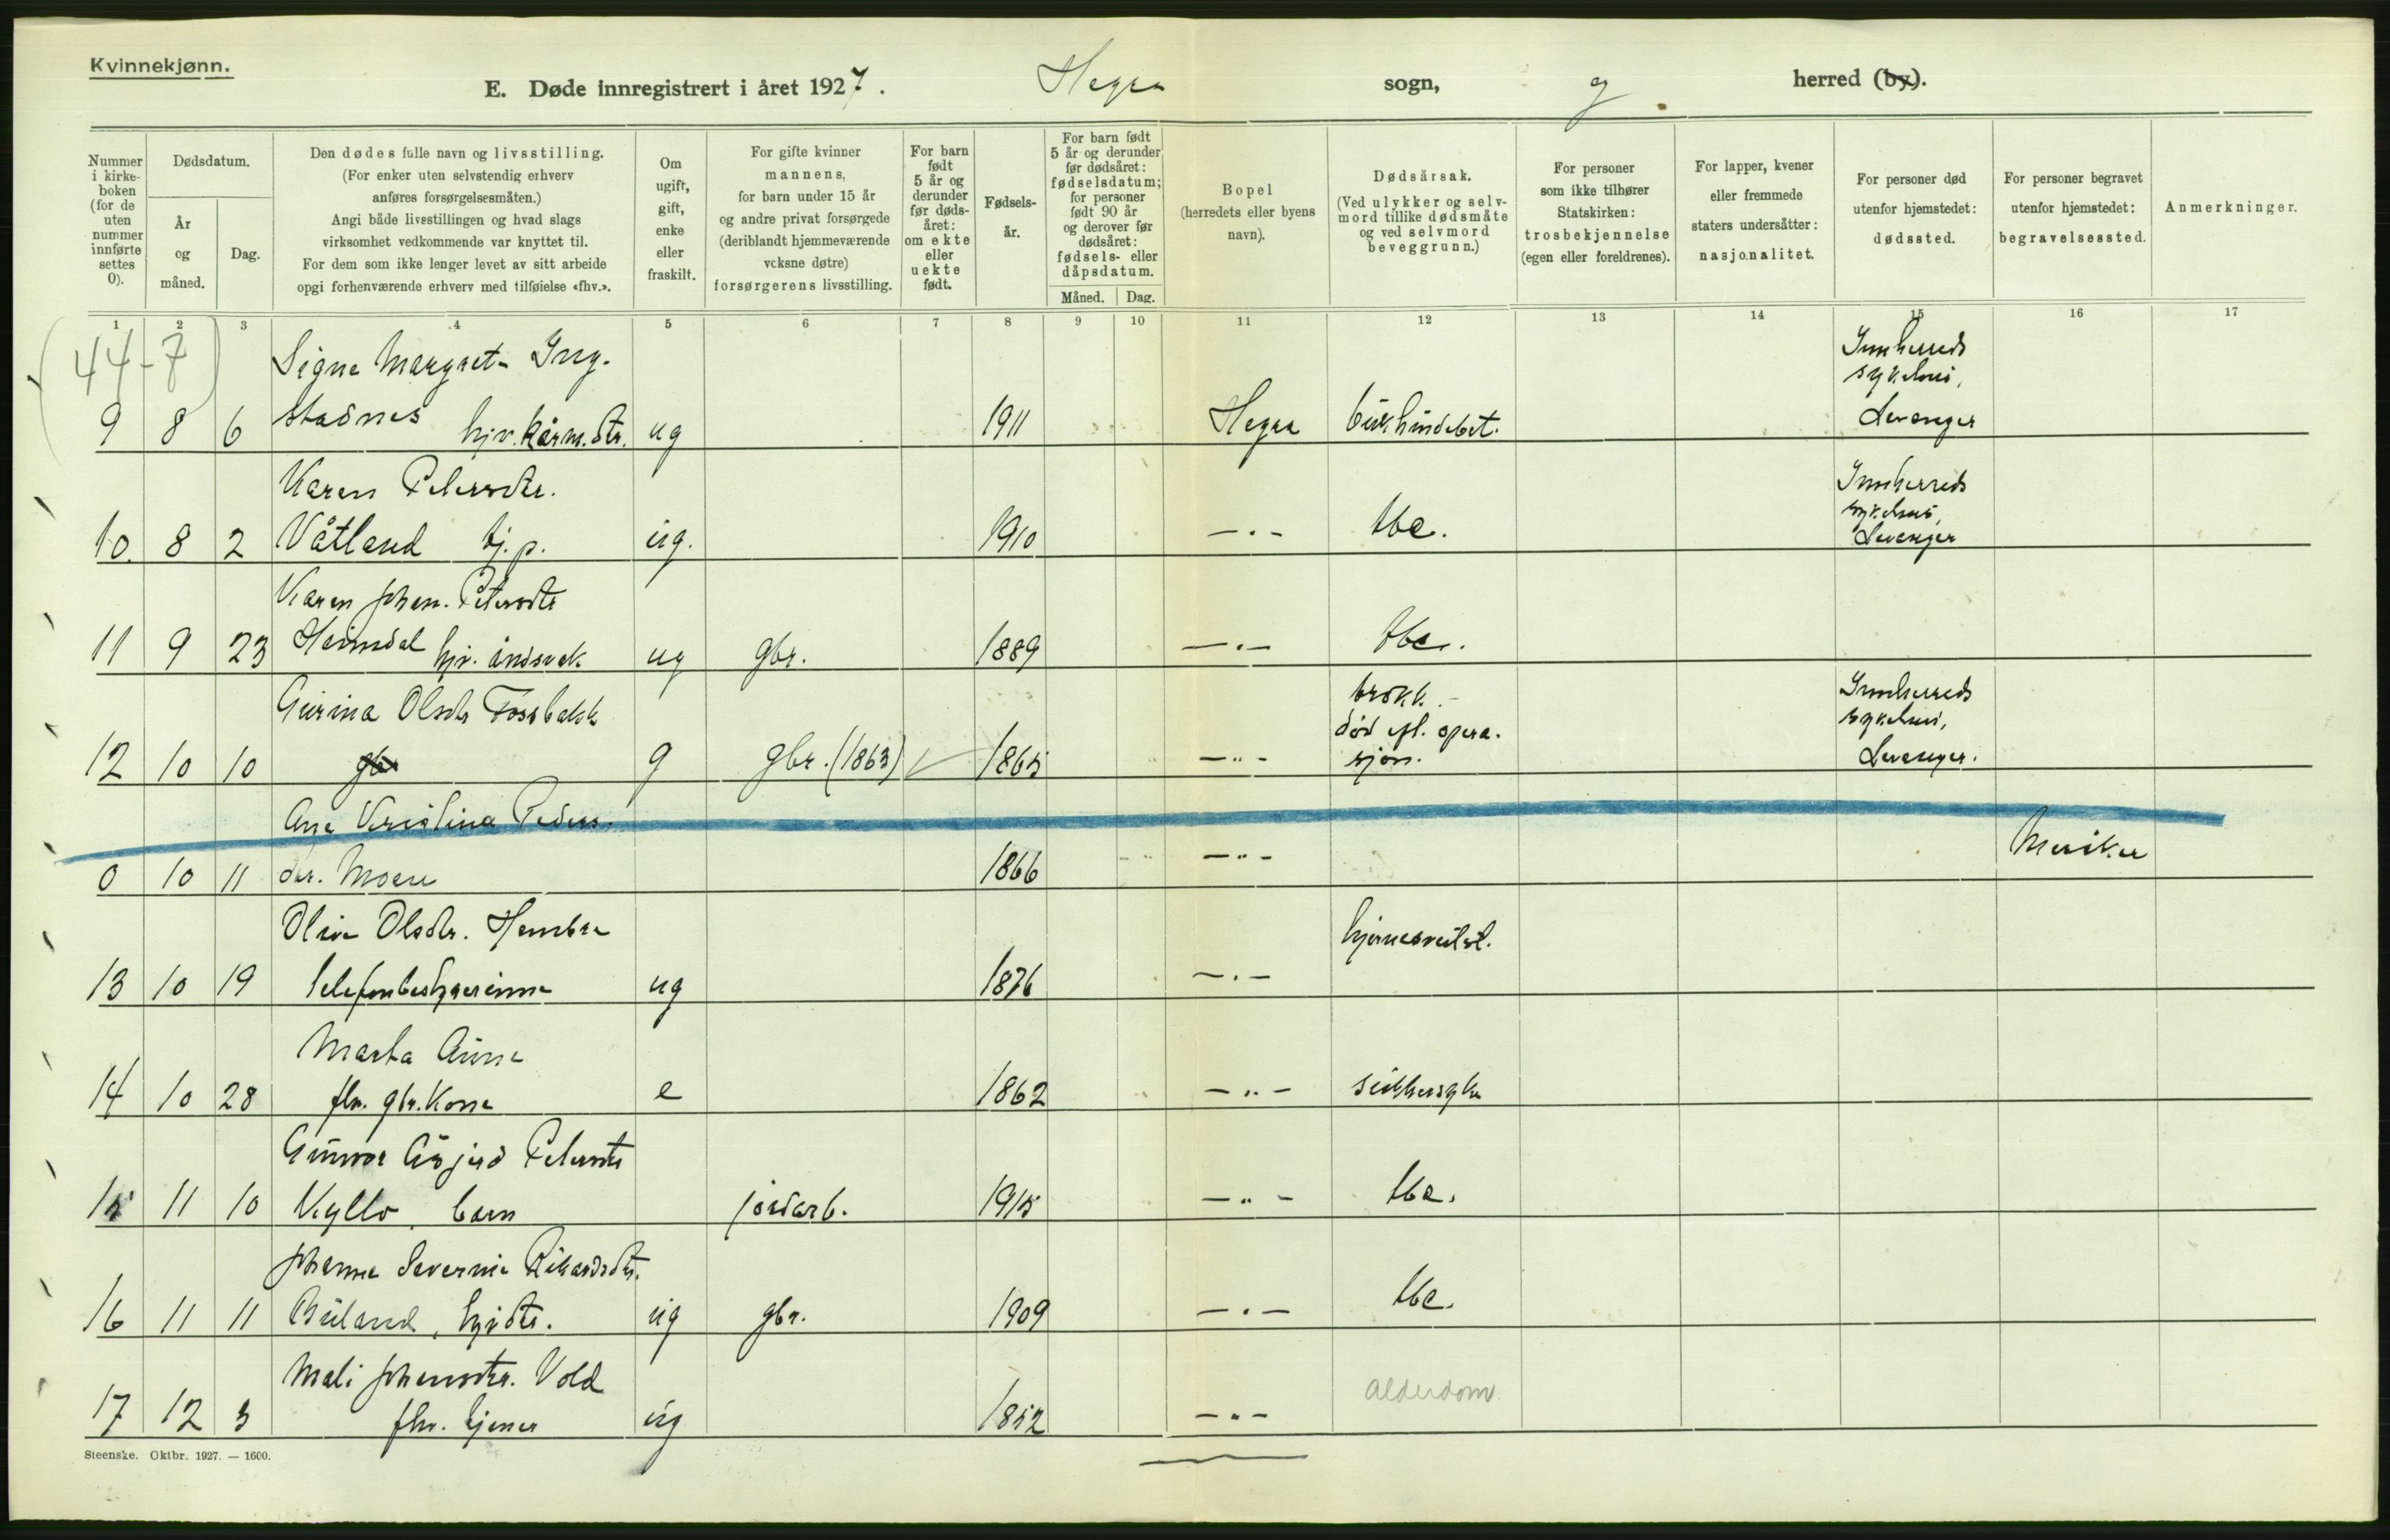 Kvinnekjønn.
E. Døde innregistrert i året 1927. Hegra sogn, og herred (by).
Nummer i kirke-boken (for de uten nummer innførte settes 0).
Dødsdatum.
År og måned.
Dag.
Den dødes fulle navn og livsstilling.
(For enker uten selvstendig erhverv
anføres forsørgelsesmåten.)
Angi både livsstillingen og hvad slags
virksomhet vedkommende var knyttet til.
For dem som ikke lenger levet av sitt arbeide
opgi forhenværende erhverv med tilføielse «fhv.».
Om ugift, gift, enke eller fraskilt.
For gifte kvinner
mannens,
for barn under 15 år
og andre privat forsørgede
(deriblandt hjemmeværende
vcksne døtre)
forsørgerens livsstilling.
For barn født 5 år og derunder før døds-året: om ekte eller uekte født.
Fødsels-år.
For barn født
5 år og derunder
før dødsåret:
fødselsdatum;
for personer
født 90 år
og derover før
dødsåret:
fødsels- eller
dåpsdatum.
Måned. Dag.
Bopel
(herredets eller byens
navn).
Dødsårsak.
(Ved ulykker og selv-
mord tillike dødsmåte
og ved selvmord
beveggrunn.)
For personer
som ikke tilhører
Statskirken:
trosbekjennelse
(egen eller foreldrenes).
For lapper, kvener
eller fremmede
staters undersåtter:
nasjonalitet.
For personer død
utenfor hjemstedet:
dødssted.
For personer begravet
utenfor hjemstedet:
begravelsessted.
Anmerkninger.
1 2 3 4 5 6 7 8 9 10 11 12 13 14 15 16 17
(44-7)
Signe Margret Ing-
Innherreds
sykehus,
9 8 6 stadnes ug 1911 Hegra Levanger
Karen Petersdtr.
Innherreds
sykehus,
10. 8 2 Våtland tj. p. ug. 1910 — . — tbc. Levanger
Karen Johan. Petersdtr
11 9 23 Heimdal hjv. åndsvak ug gbr. 1889 — . — tbc.
Gurina Olsdtr Fossbakk
brokk. -
død eft. opera-
sjon.
Innherreds
sykehus,
12 10 10 gbr g gbr. (1863) 1865 — " — Levanger.
Ane Kristina Peders.
0 10 11 dtr. Moen 1866 — " — Meråker
Oline Olsdtr. Hembre
hjernesvulst.
13 10 19 telefonbestyrerinne ug 1876 — . —
Marta Aune
14 10 28 fhv. gbr. Kone e 1862 — " — sukkersyke
Gunvor Åsjerd Petersdtr
15 11 10 Kyllo, barn jordarb. 1915 — " — tbc.
Johanna Severine Rikardsdtr.
16 11 11 Buland, hjv dtr. ug gbr. 1909 — . — tbc.
Mali Johansdtr. Vold
17 12 3 fhv. tjener ug 1852 — " — alderdom
Steenske. Oktbr. 1927. — 1600.